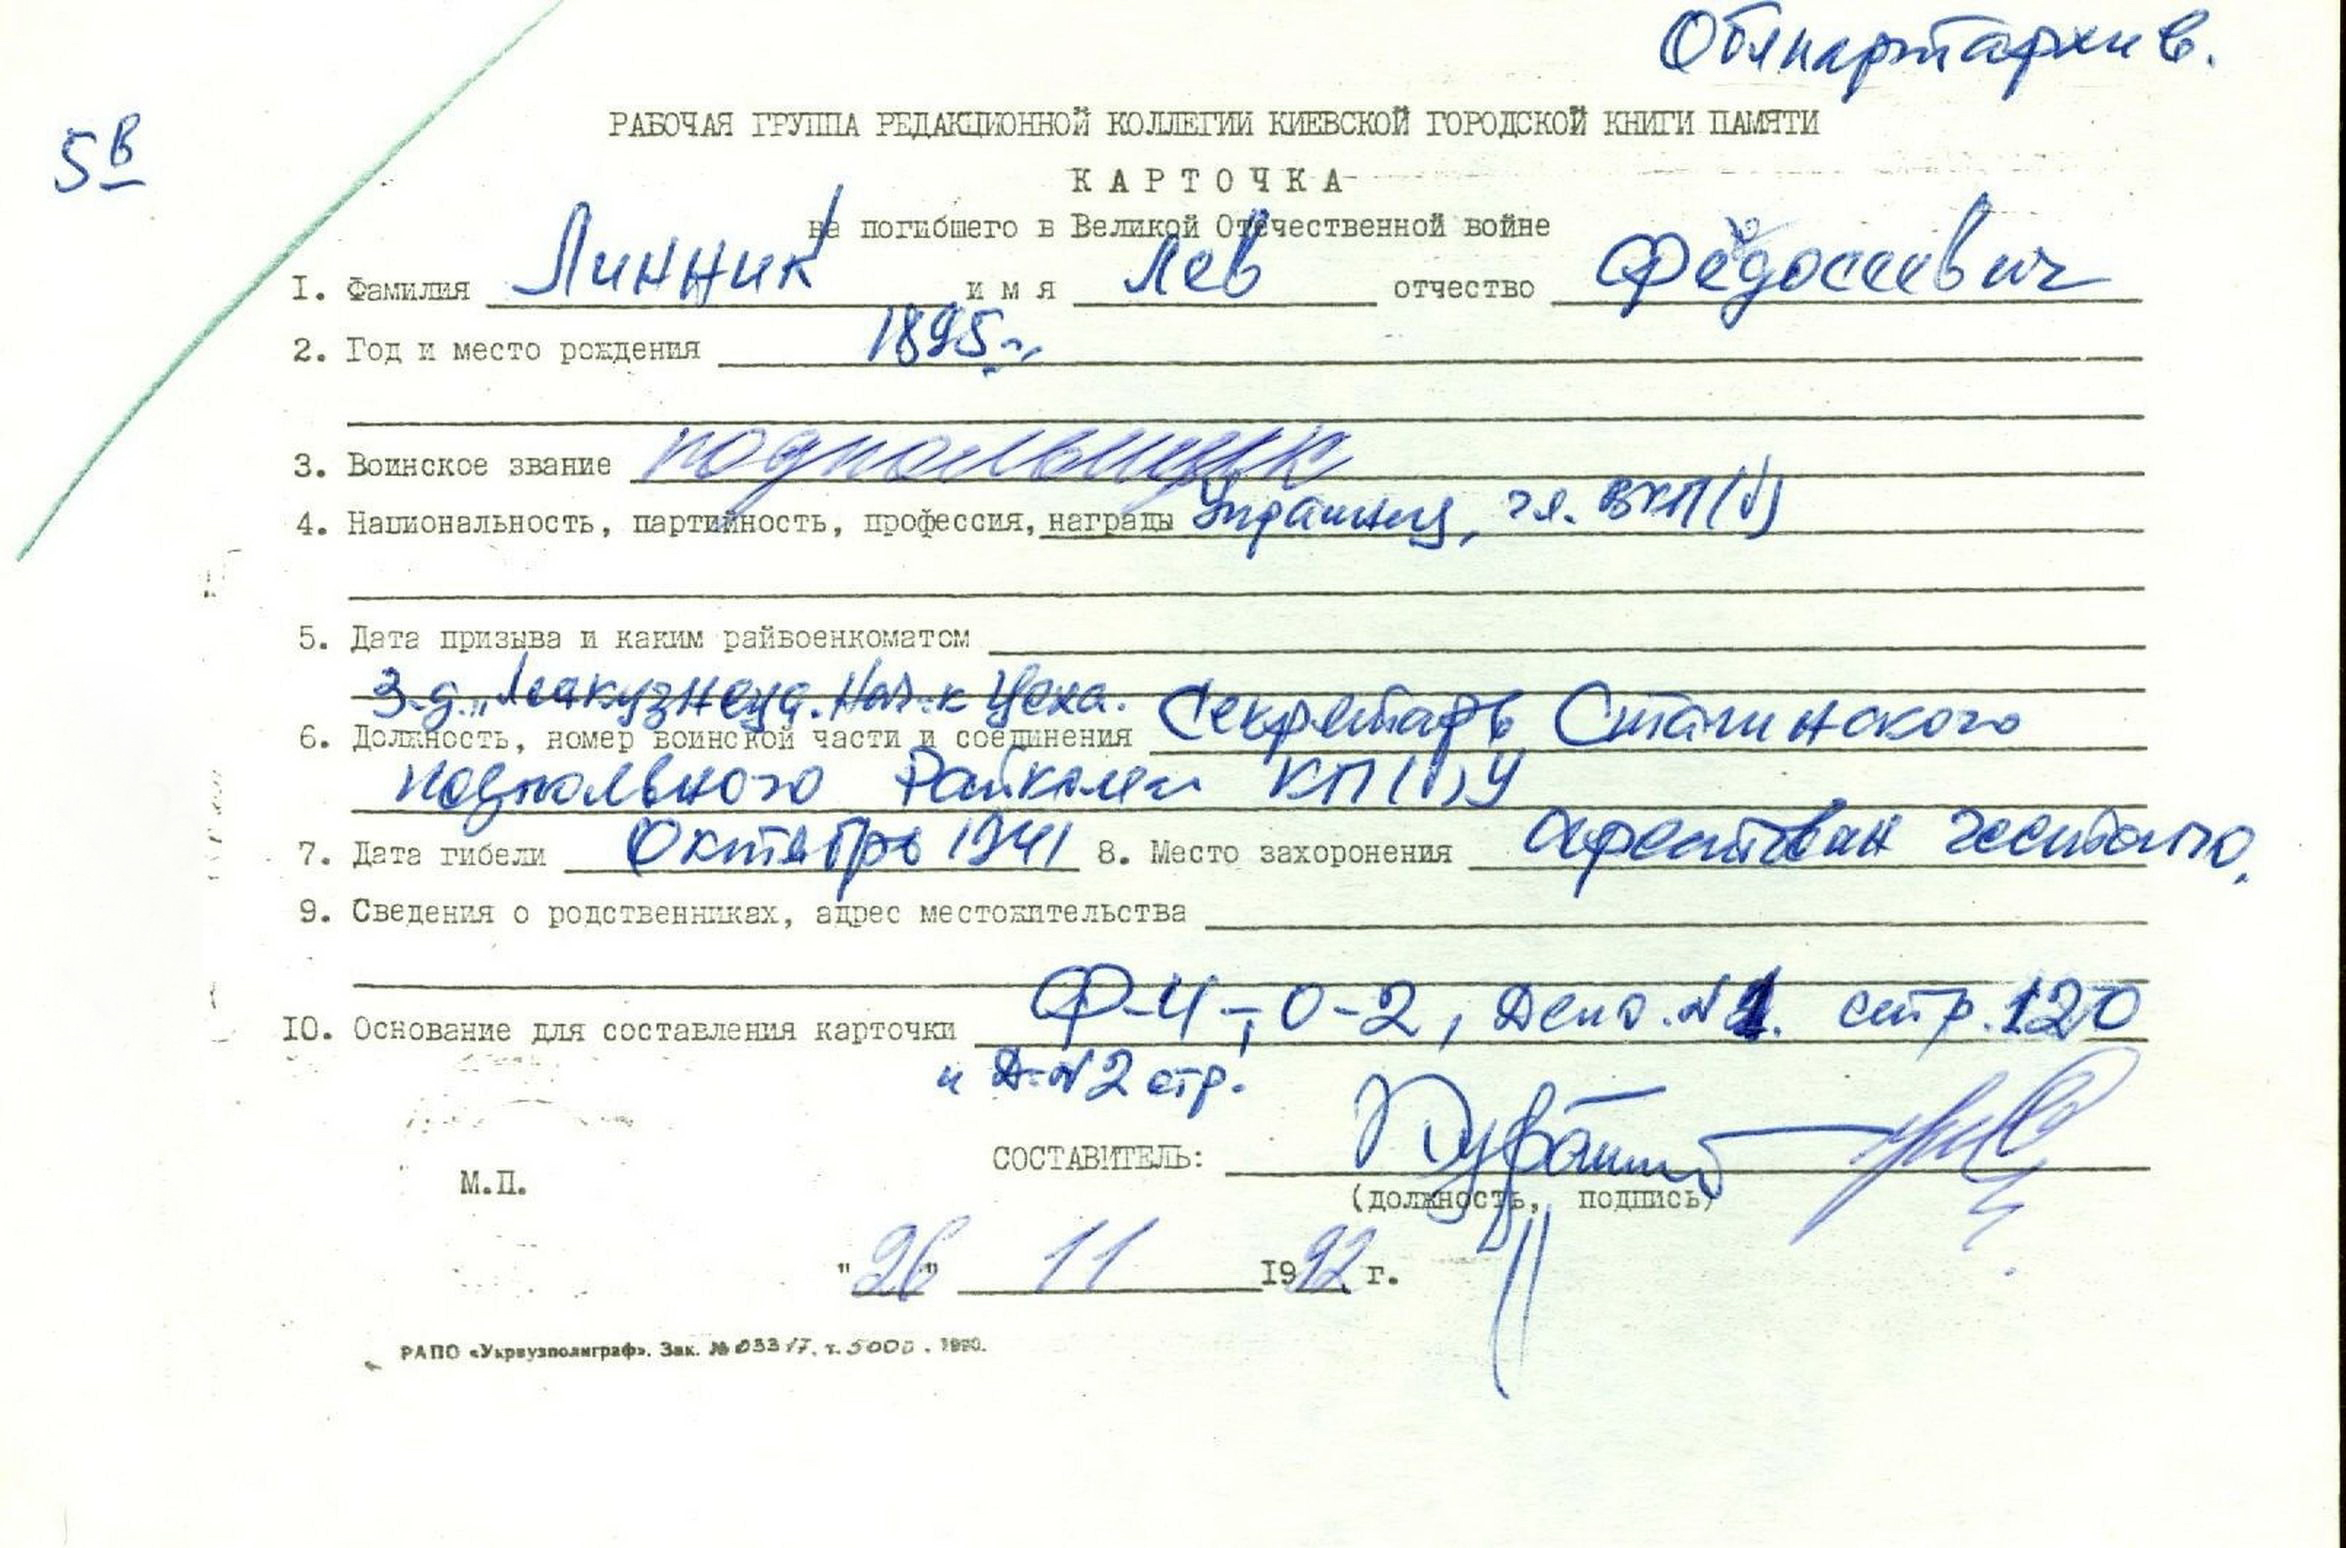 Облпартархив.
5в
РАБОЧАЯ ГРУППА РЕДАКЦИОННОЙ КОЛЛЕГИИ КИЕВСКОЙ ГОРОДСКОЙ КНИГИ ПАМЯТИ
КАРТОЧКА
на погибшего в Великой Отечественной войне
I. Фамилия Линник имя Лев отчество Федосеевич
2. Год и место рождения 1895 г.
3. Воинское звание подпольщик
4. Национальность, партийность, профессия, награды Украинец, чл. ВКП(б)
5. Дата призыва и каким райвоенкоматом
З-д. Нач-к цеха.
6. Должность, номер воинской части и соединения Секретарь Сталинского
подпольного Райкома КП(б)У
7. Дата гибели Октябрь 1941 8. Место захоронения арестован гестапо.
9. Сведения о родственниках, адрес местожительства
IO. Основание для составления карточки Ф-4-, О-2, Дело. №1. стр. 120
и Д-№2 стр.
СОСТАВИТЕЛЬ:
М.П. (должность, подпись)
"26" 11 1992 г.
РАПО «Укрвузполиграф». Зак. № 03317. т. 5000. 1990.